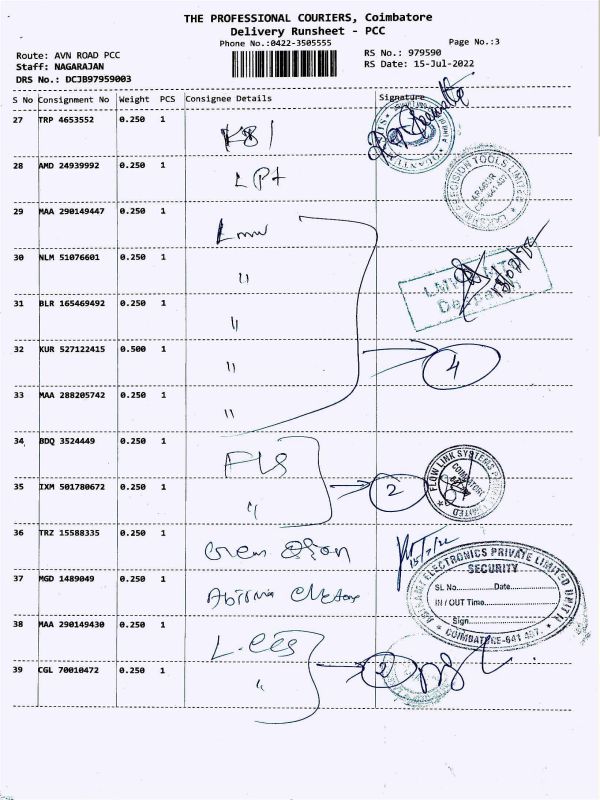 THE PROFESSIONAL COURIERS, Coimbatore
Delivery Runsheet - PCC
Phone No.:0422-3505555
Page No.:3
Route: AVN ROAD PCC
RS No.: 979590
Staff: NAGARAJAN
RS Date: 15-Jul-2022
DRS No.: DCJB97959003
S No Consignment No Weight PCS Consignee Details Signature
27 TRP 4653552 0.250 1 KSI
28 AMD 24939992 0.250 1 LPT
29 MAA 290149447 0.250 1
30 NLM 51076601 0.250 1 "
31 BLR 165469492 0.250 1 "
32 KUR 527122415 0.500 1 " 4
33 MAA 288205742 0.250 1 "
34 BDQ 3524449 0.250 1 FLS
35 IXM 501780672 0.250 1 " 2
36 TRZ 15588335 0.250 1 15/7/22
37 MGD 1489049 0.250 1
38 MAA 290149430 0.250 1
39 CGL 70010472 0.250 1 " 2
PRECISION TOOLS LIMITED
FLOW LINK SYSTEMS
COIMBATORE
ELECTRONICS PRIVATE LIMITED UNIT
SECURITY
SL No. Date
IN / OUT Time
Sign
COIMBATORE-641 407.